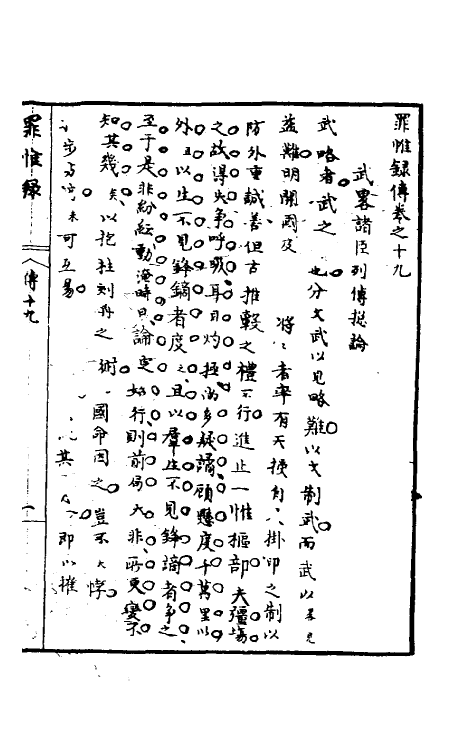 罪惟錄傳卷之十九
武畧諸臣列傳總論
武略者武之 也分文武以見略難以文制武而武以不見
益難明開國及 將將者率有天授自 掛印之制以
防外重誠善但古推轂之禮不行進止一惟樞部夫疆場
之故得失爭呼吸耳目灼極尚多疑譎顧懸度千萬里以
外且以生不見鋒鏑者度之且以羣生不見鋒鏑者爭之
至于是非紛紜動淹時日論定始行則前局大非所更變不
知其幾矣以抱柱刻舟之術 國命因之豈不大悖
步 未可互易 其 即以推
罪惟録
傳十九